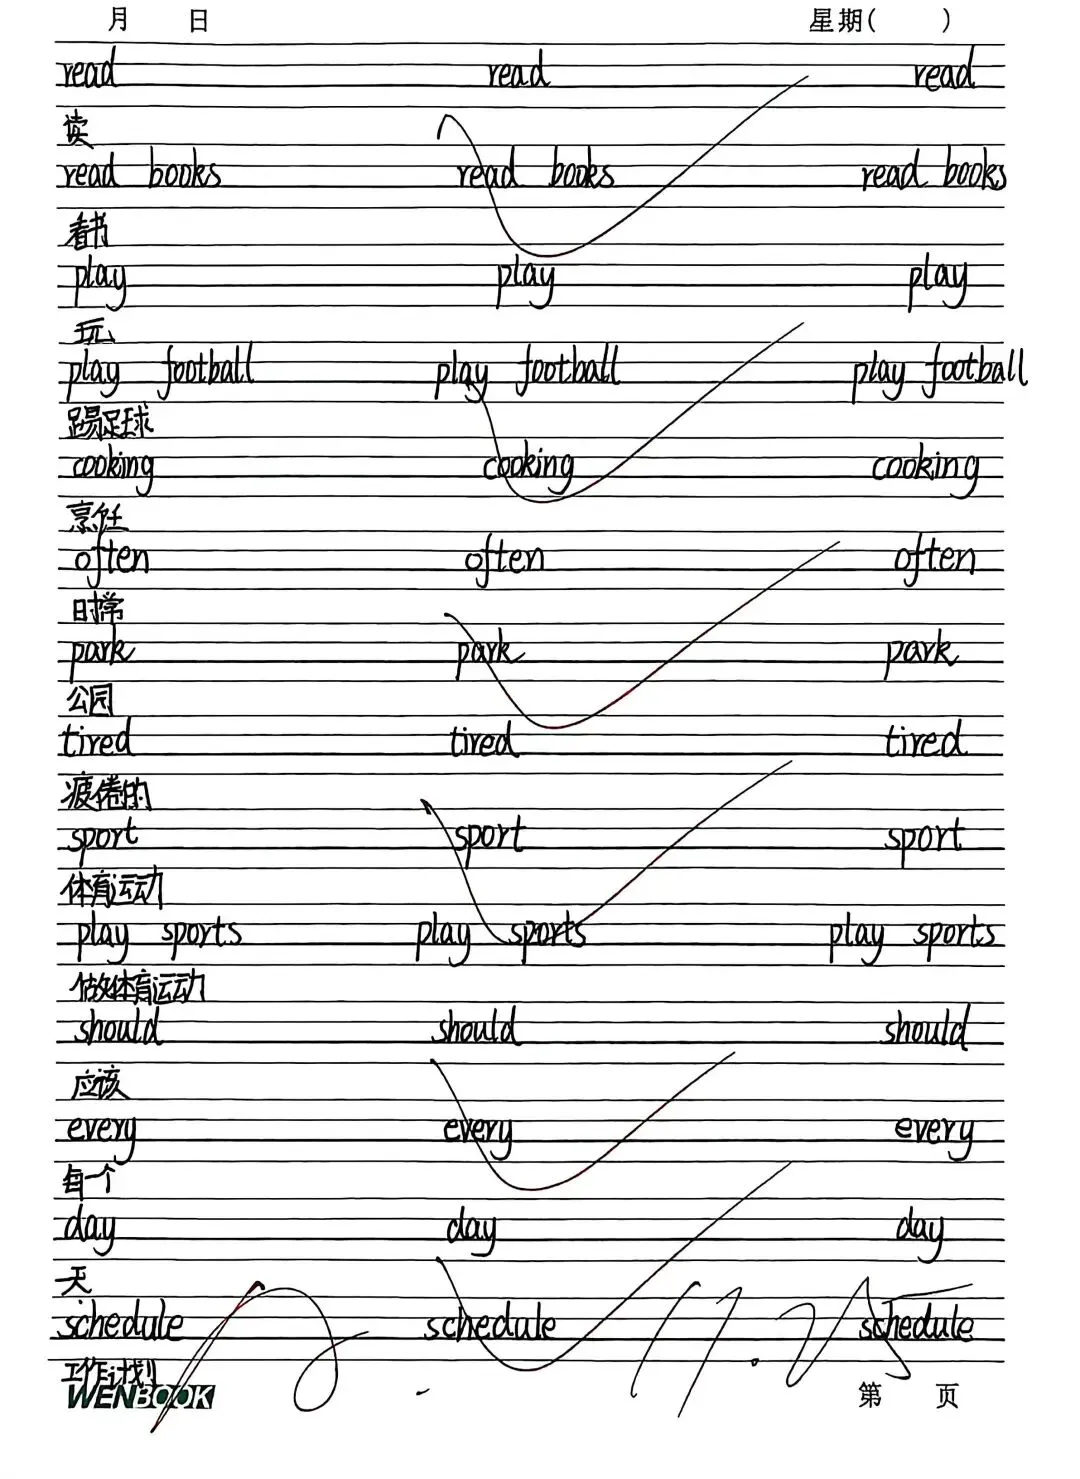 月 日 星期( )
read read read
读
read books read books read books
看书
play play play
玩
play football play football play football
踢足球
cooking cooking cooking
烹饪
often often often
时常
park park park
公园
tired tired tired
疲倦的
sport sport sport
体育运动
play sports play sports play sports
做体育运动
should should should
应该
every every every
每一个
day day day
天
schedule schedule schedule
工作计划
11.25
WENBOOK 第 页